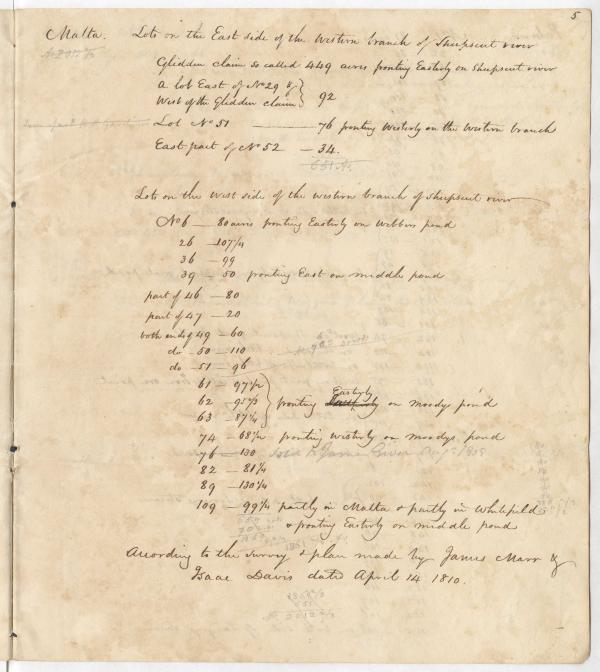 5
Malta. Lots on the East side of the Western branch of Sheepscut river
Glidden claim so called 449 acres fronting Easterly on Sheepscut river
A lot East of No 29 &
West of the Glidden claim } 92
Lot No 51 — 76 fronting Westerly on the Western branch
East part of No 52 — 34.
651.
Lots on the West side of the western branch of Sheepscut river
No 6 — 80 acres fronting Easterly on Webbers pond
26 — 107 1/4
36 — 99
39 — 50 fronting East on middle pond
part of 46 — 80
part of 47 — 20
both ends of 49 — 60
do — 50 — 110
do — 51 — 96
61 — 97 1/2
Easterly
62 — 95 1/2 } fronting on Moodys pond
63 — 87 1/4
74 — 68 1/2 fronting Westerly on moodys pond
76 — 130 sold to James
82 — 81 1/4
89 — 130 1/4
109 — 99 1/4 partly in Malta & partly in Whitefield
& fronting Easterly on middle pond
According to the survey & plan made by James Marr &
Isaac Davis dated April 14 1810.